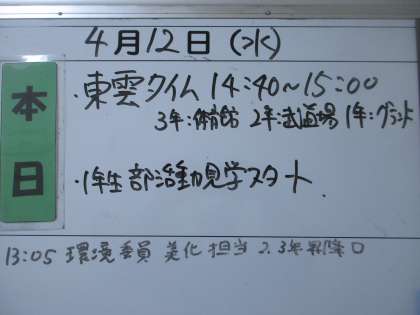 4月12日(水)
本日
・東雲タイム 14:40~15:00
3年:体育館 2年:武道場 1年:グランド
・1年生部活動見学スタート
13:05 環境委員 美化担当 2.3年昇降口